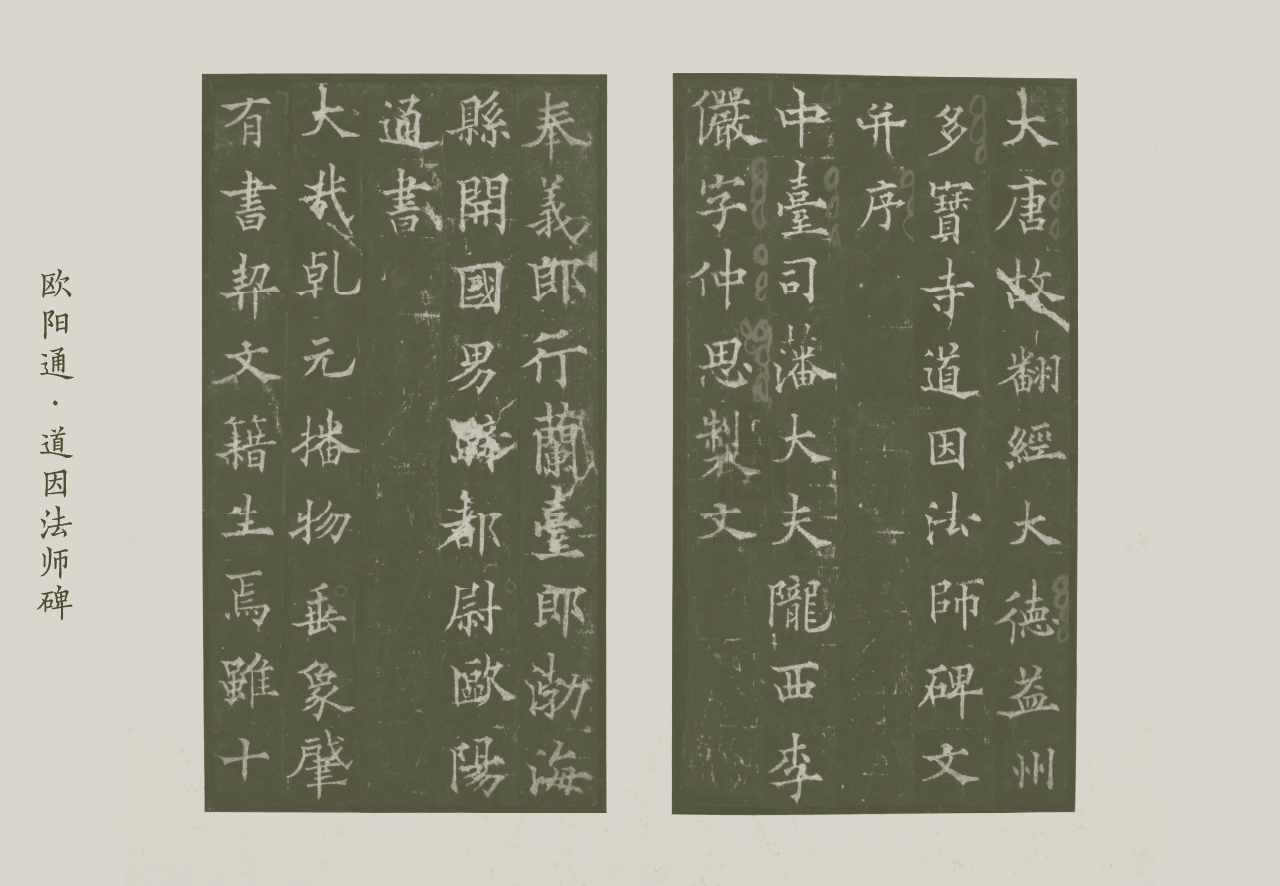 大唐故翻經大德益州
多寶寺道因法師碑文
并序
中臺司藩大夫隴西李
儼字仲思製文
奉義郎行蘭臺郎渤海
縣開國男騎都尉歐陽
通書
大哉乹元播物垂象肇
有書契文籍生焉雖十
欧阳通·道因法师碑